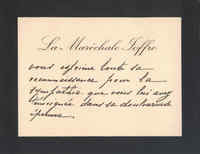 La Maréchale Joffre
vous exprime toute sa
reconnaissance pour la
sympathie que vous lui avez
témoignée dans sa douloureuse
épreuve